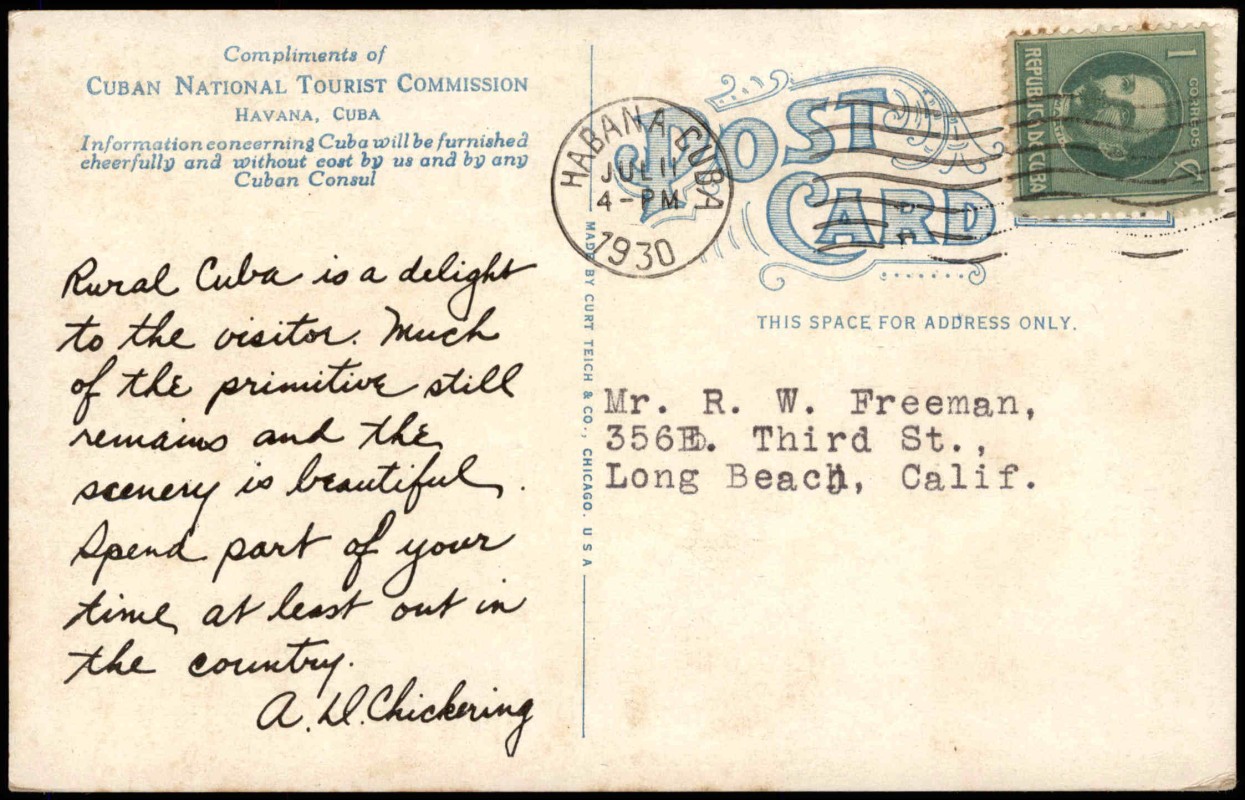 Compliments of
CUBAN NATIONAL TOURIST COMMISSION
HAVANA, CUBA
Information concerning Cuba will be furnished
cheerfully and without cost by us and by any
Cuban Consul
Rural Cuba is a delight
to the visitor. Much
of the primitive still
remains and the
scenery is beautiful.
Spend part of your
time at least out in
the country.
A. D. Chickering
MADE BY CURT TEICH & CO., CHICAGO. U S A
HABANA CUBA
JUL 11
4-PM
1930
POST
CARD
1
CORREOS
REPUBLICA DE CUBA
THIS SPACE FOR ADDRESS ONLY.
Mr. R. W. Freeman,
356E. Third St.,
Long Beach, Calif.